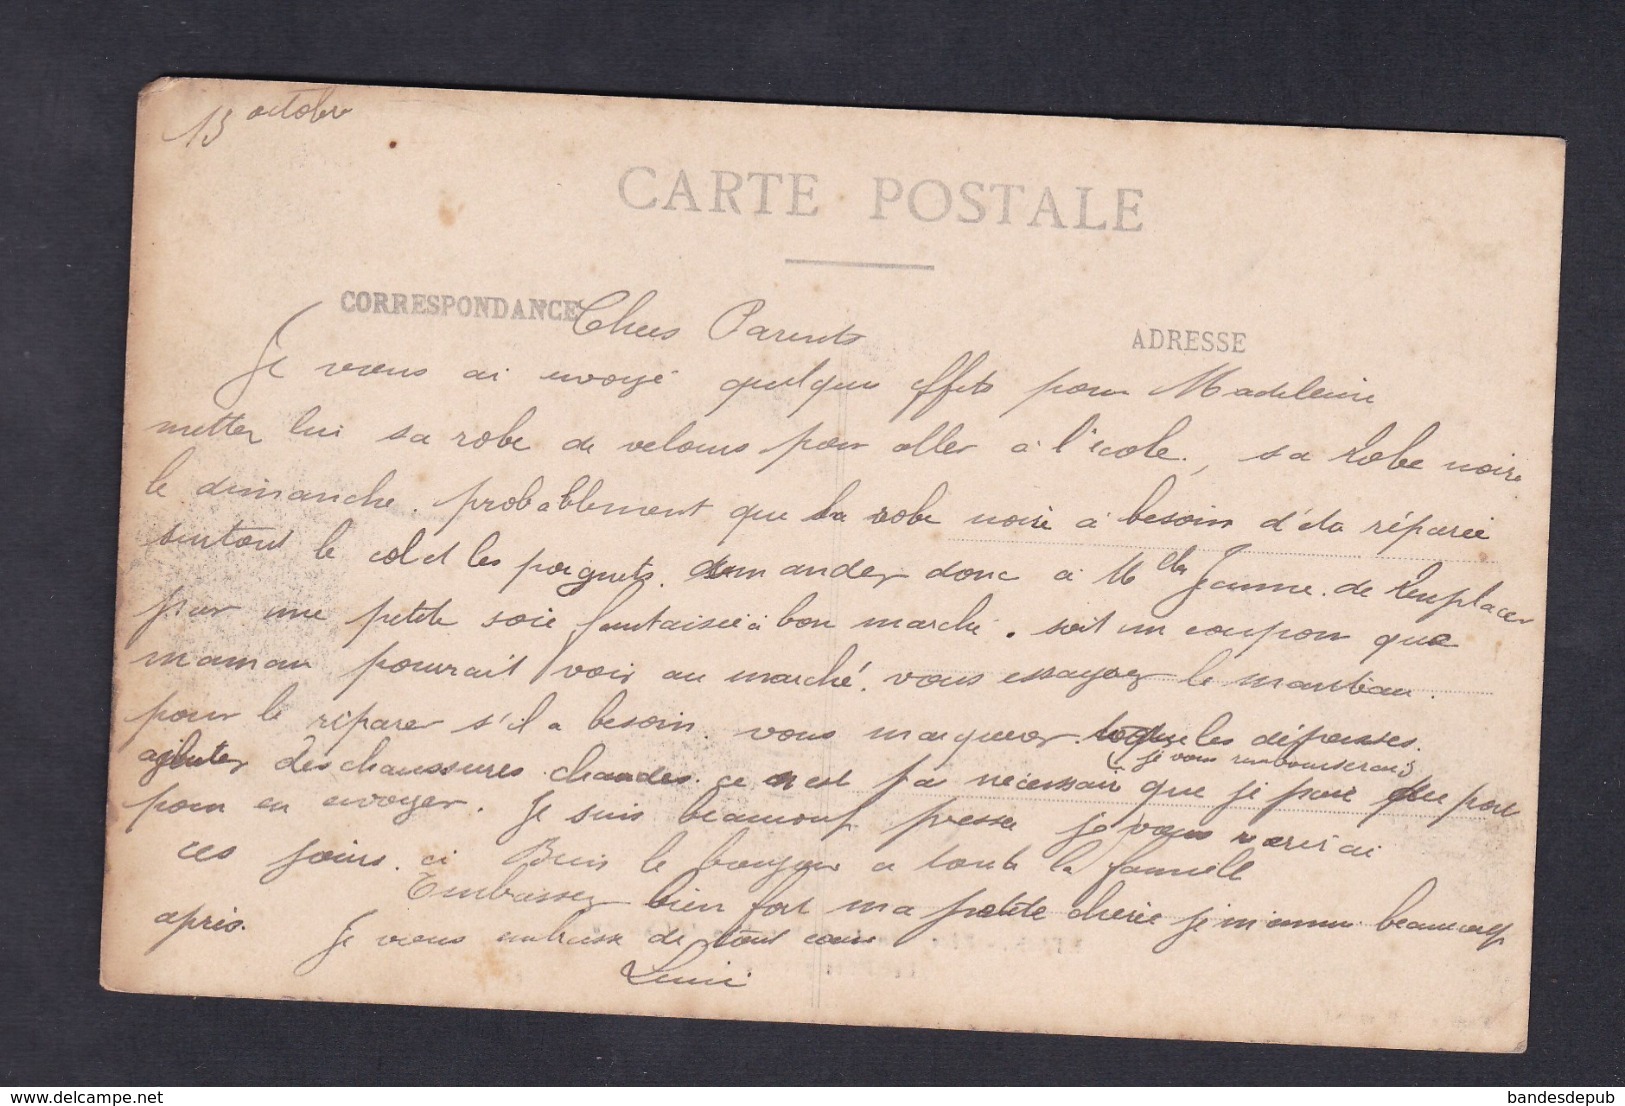 13 octobre
CARTE POSTALE
CORRESPONDANCE
ADRESSE
Chers Parents
Je vous ai envoyé quelques effets pour Madeleine
mettez lui sa robe de velours pour aller à l'école, sa robe noire
le dimanche. probablement que la robe noire a besoin d'éta réparée
surtout le col et les poignets. demandez donc à Mlle Jeanne. de remplacer
par une petite soie fantaisie à bon marché. soit un coupon que
maman pourrait voir au marché. vous essayerez le manteau.
pour le réparer s'il a besoin. vous marquerez les dépenses.
(je vous rembourserai)
acheter des chaussures chaudes. ce n est pa nécessaire que je paie port
pour en envoyer. Je suis beaucoup presse je vous
ces jours. ci le bonjour a toute la famille
Embrassez bien fort ma petite cherie je m'ennui beaucoup
après. Je vous embrasse de tout cœur
delcampe.net
bandesdepub